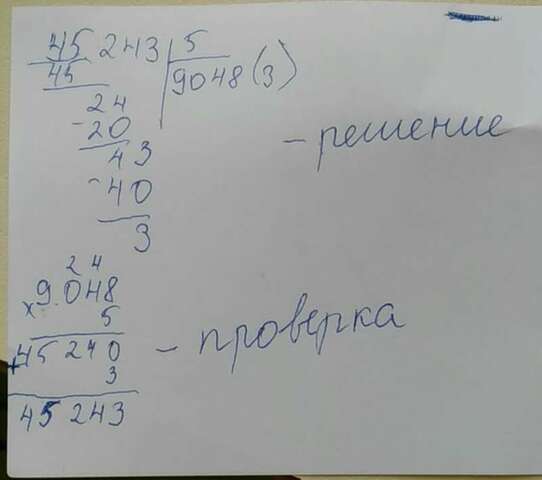 45 243 | 5
45
9048 (3)
24
- 20
43
- 40
3
- решение
2 4
9.048
x 5
45 240
+ 3
45 243
- проверка